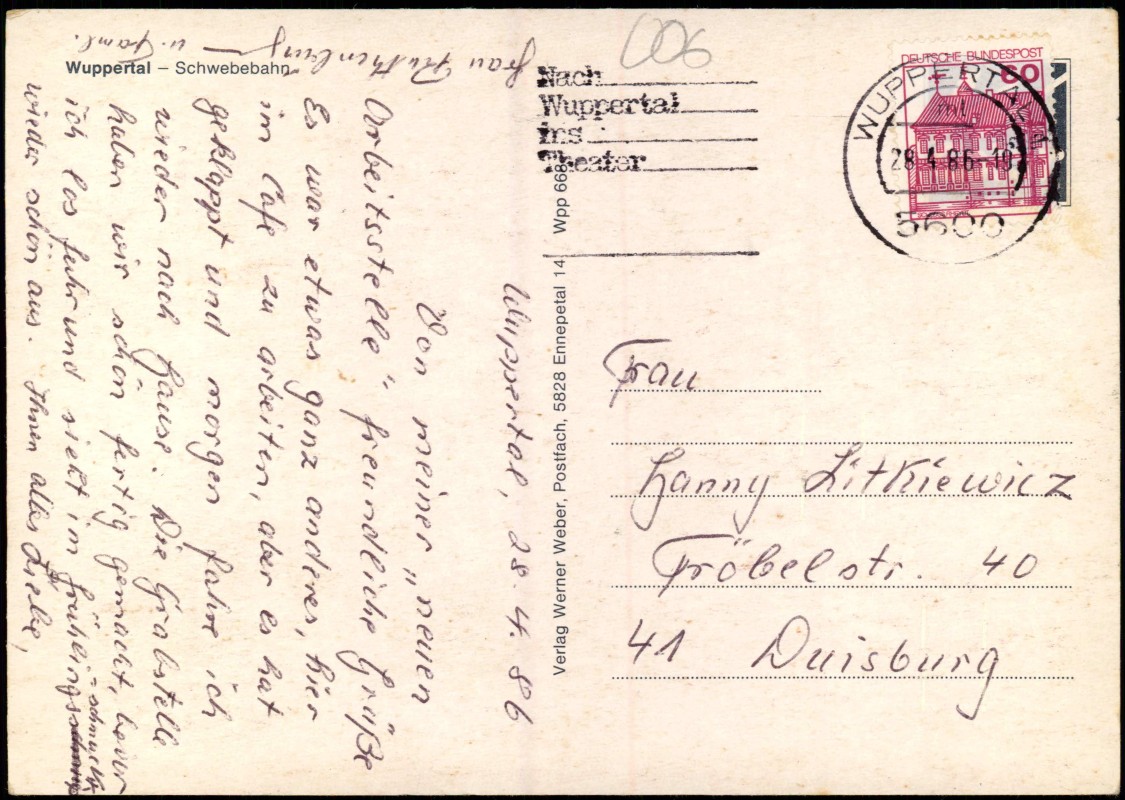 Wuppertal – Schwebebahn
Wuppertal, 28. 4. 86
Von meiner „neuen
Arbeitsstelle" freundliche Grüße
Es war etwas ganz anderes, hier
im Cafe zu arbeiten, aber es hat
geklappt und morgen fahre ich
wieder nach Hause. Die Grabstelle
haben wir schön fertig gemacht, bevor
ich los fuhr und sieht im Frühlings-schmuck
wieder schön aus. Ihnen alles Liebe,
Frau
u. Faml.
Verlag Werner Weber, Postfach, 5828 Ennepetal 14 Wpp 668
006
Nach
Wuppertal
ins
Theater
DEUTSCHE BUNDESPOST
60
WUPPERTAL 1
28.4.86-18
5600
Frau
Hanny Litkiewicz
Fröbelstr. 40
41 Duisburg